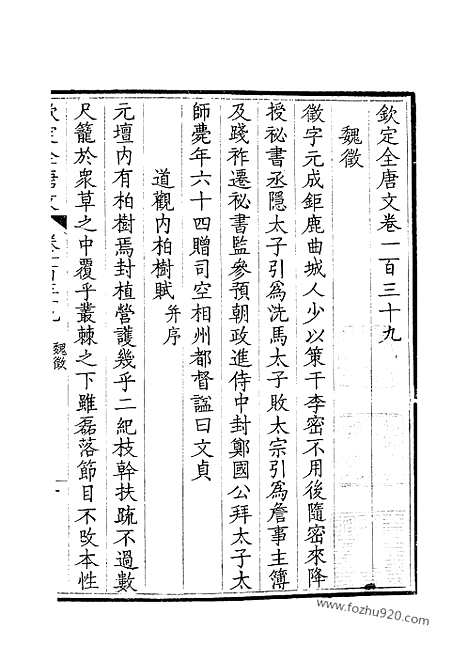 欽定全唐文卷一百三十九
魏徵
徵字元成鉅鹿曲城人少以策干李密不用後隨密來降
授祕書丞隱太子引爲洗馬太子敗太宗引爲詹事主簿
及踐祚遷祕書監參預朝政進侍中封鄭國公拜太子太
師薨年六十四贈司空相州都督謚曰文貞
道觀内柏樹賦并序
元壇内有柏樹焉封植營護幾乎二紀枝幹扶疏不過數
尺籠於衆草之中覆乎叢棘之下雖磊落節目不改本性
欽定全唐文 卷一百三十九 魏徵 一
www.fozhu920.com